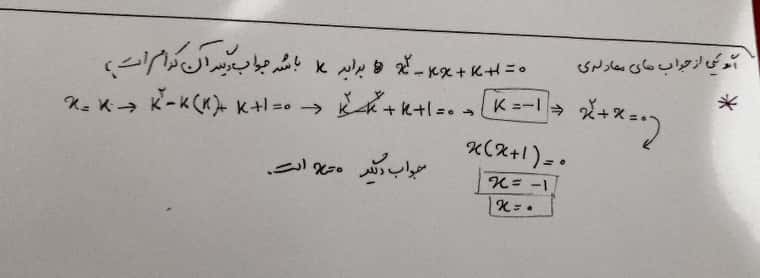 اگر یکی از جواب های معادله ی x² - kx + k+1=0 برابر k باشد جواب دیگر آن کدام است؟
* x=k → k² - k(k) + k+1=0 → k² - k² + k+1=0 → k=-1 ⇒ x² + x=0
x(x+1)=0
x=-1
جواب دیگر x=0 است.
x=0